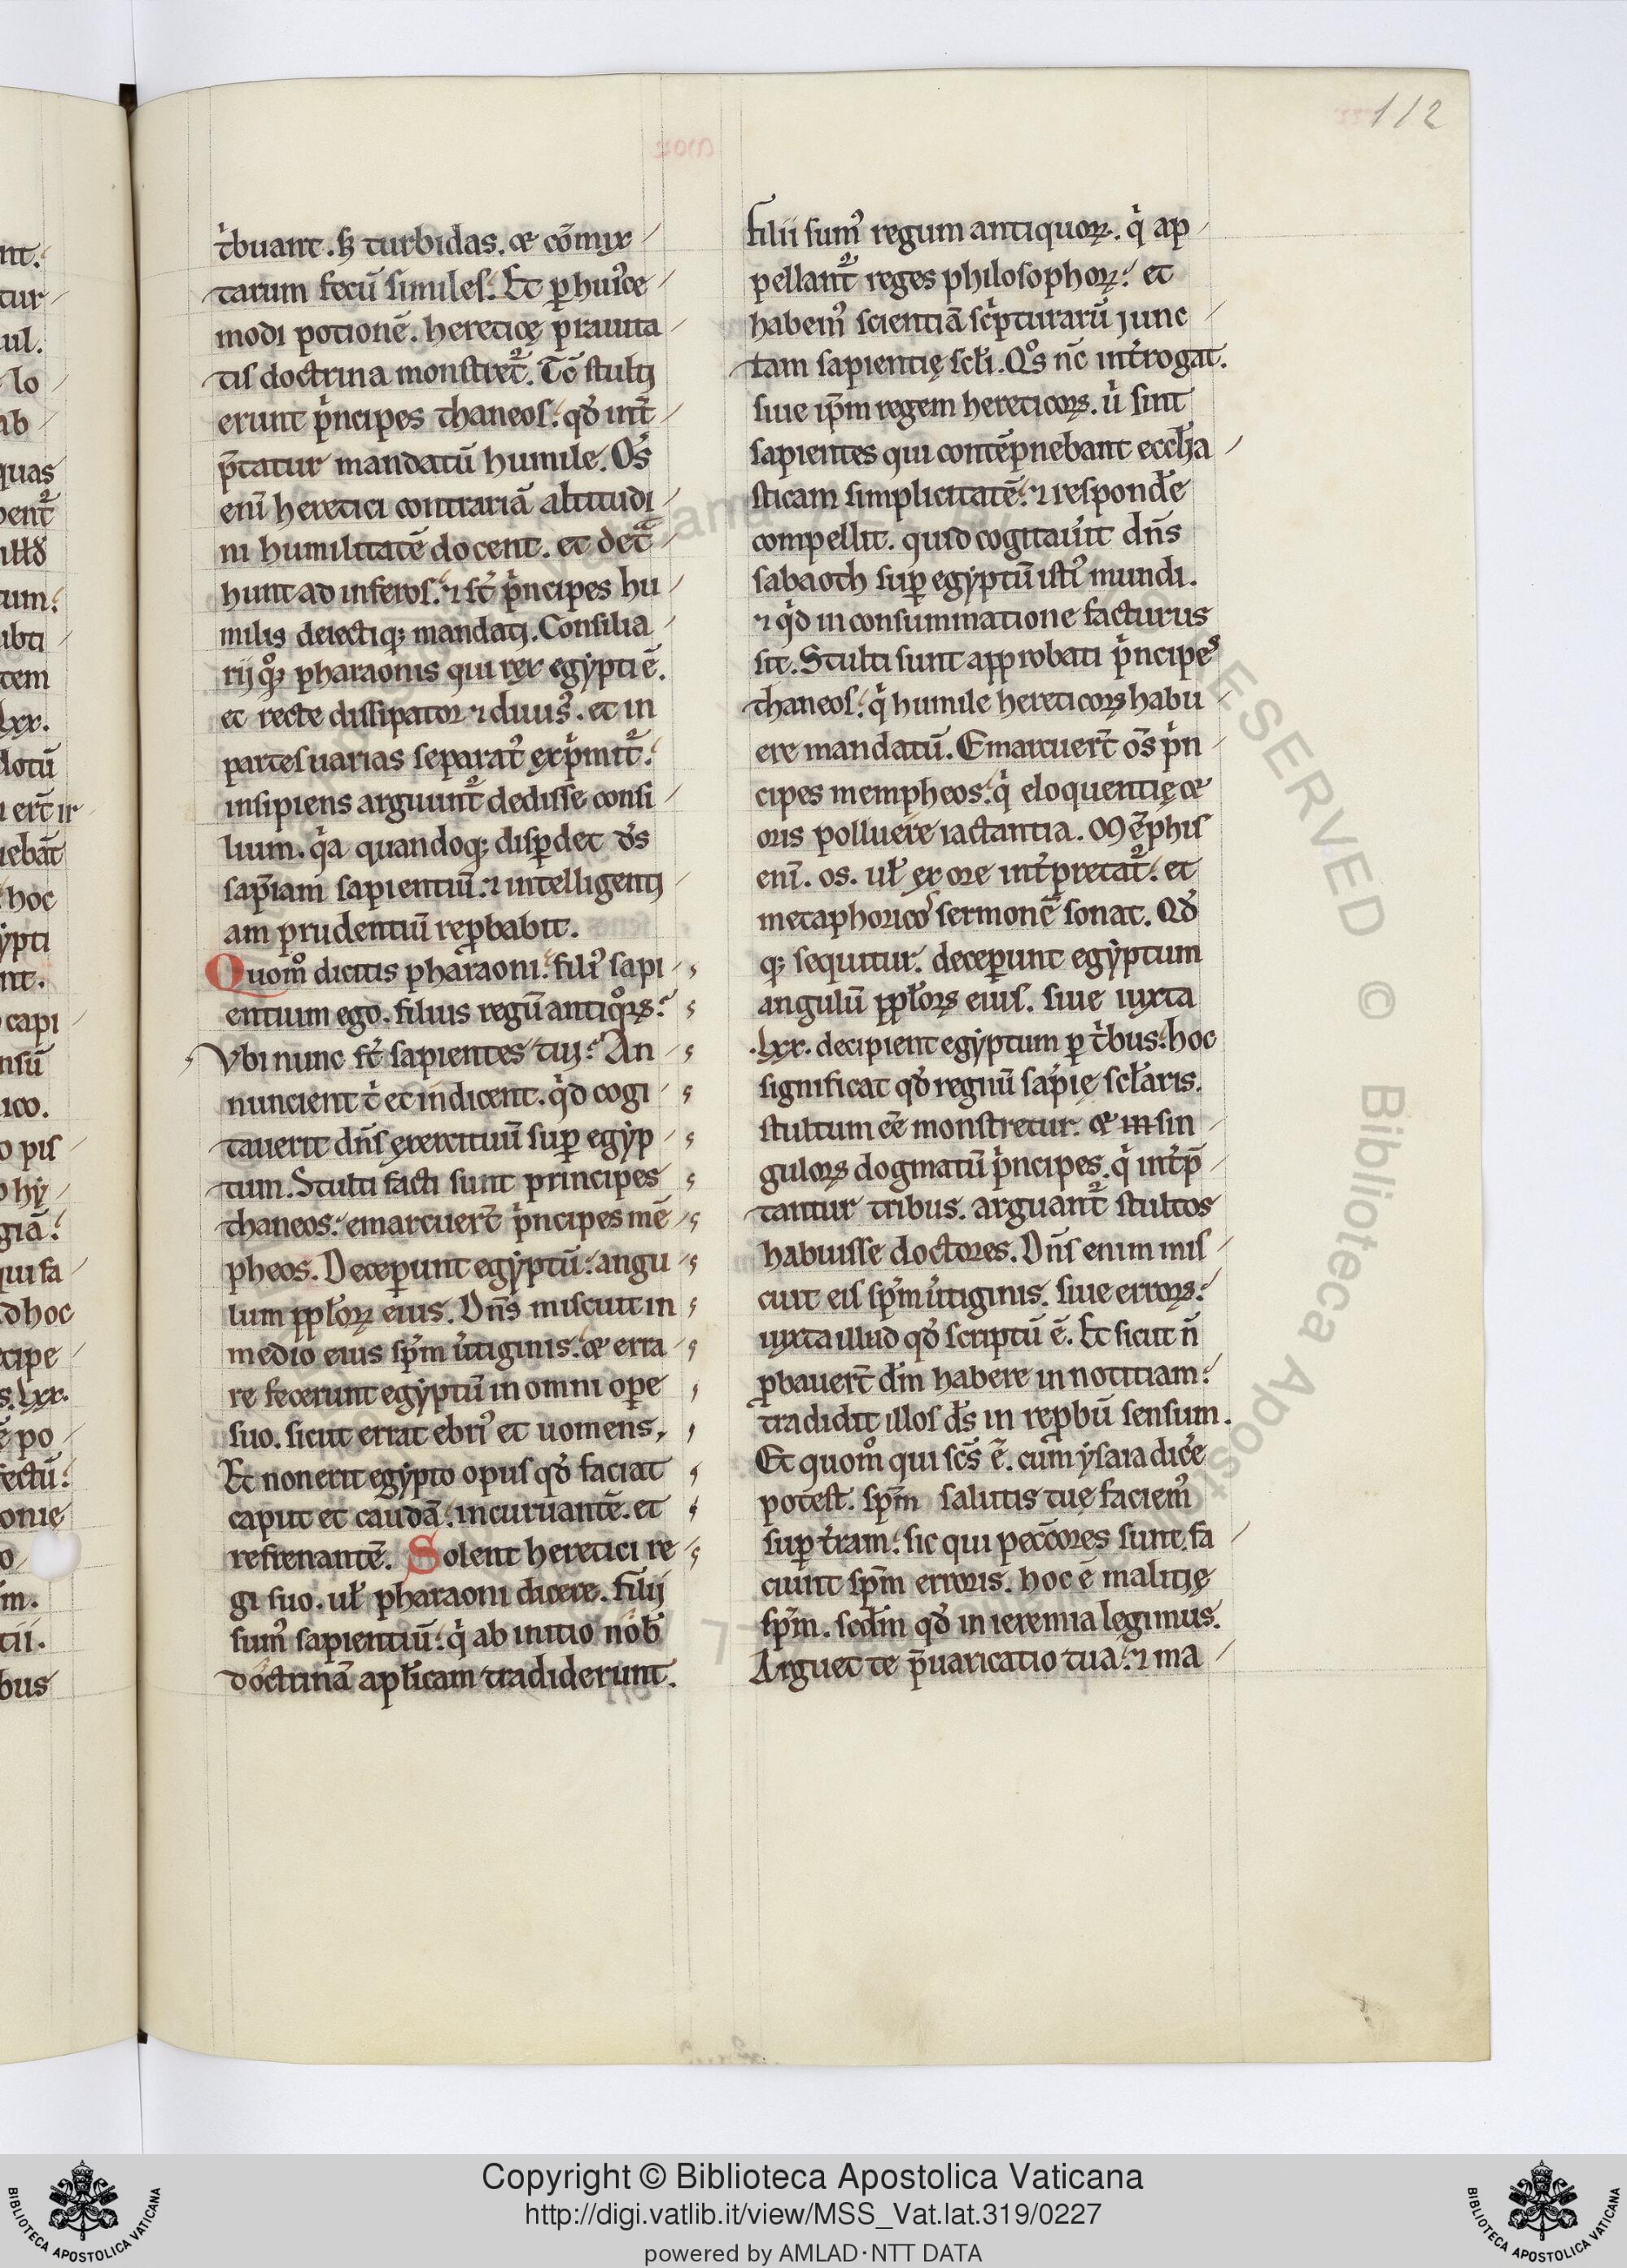 112
t͛buant . sꝫ turbidas . & cōmix
tarum fecū similes . Et ꝑ huiꝰce
modi potionē . heretice̜ prauita
tis doctrina monstret᷑ . Tc̄ stulti
erunt pͥncipes thaneos . qd̕ int̄
p̄tatur mandatū humile . Om̄s
eni̅ heretici contrariā altitudi
ni humilitatē docent . et det͛
hunt ad inferos . ⁊ st̄ pͥncipes hu
milis deiectiqꝫ mandati . Consilia
rij qͦqꝫ pharaonis qui rex egypti ē .
et recte dissipator ⁊ diuisꝰ . et in
partes uarias separatꝰ expͥmit᷑
insipiens arguunt᷑ dedisse consi
lium . qͥa quandoqꝫ disꝑdet ds̄
sap̄iam sapientiū . ⁊ intelligenti
am prudentiū reꝓbabit .
Quomͦ dicitis pharaoni . filiꝰ sapi
entium ego . filius regū antiqͦꝝ .
Vbi nunc st̄ sapientes tui . An
nuncient tͥ et indicent . qͥd cogi
tauerit dn̄s exercituū suꝑ egyp
tum . Stulti facti sunt principes
thaneos . emarcuer̄t pͥncipes mē
pheos . Deceꝑunt egyptū . angu
lum ppl̄oꝝ eius . Dn̄s miscuit in
medio eius sp̄m u͛tiginis . & erra
re fecerunt egyptū in omni oꝑe
suo . sicut errat ebriꝰ et uomens .
Et non erit egypto opus qd̕ faciat
caput et caudā . incuruantē . et
refrenantē . Solent heretici re
gi suo . ul̄ pharaoni dicere . filij
sumꝰ sapientiū . qͥ ab initio nob̄
doctrinā apl̄icam tradiderunt .
filii sumꝰ regum antiquoꝝ . qͥ ap
pellant᷑ reges philosophoꝝ . et
habemꝰ scientiā scͥpturarū junc
tam sapientie̜ scl̄i . Qͦs nc̄ int͛rogat .
siue ip̄m regem hereticoꝝ . uͥ sint
sapientes qui contēpnebant eccl̄ia
sticam simplicitatē . ⁊ respond͛e
compellit . quid cogitau͛it dn̄s
sabaoth suꝑ egyptū istiꝰ mundi .
⁊ qͥd in consummatione facturus
sit . Stulti sunt approbati pͥncipes
thaneos . qͥ humile hereticoꝝ habu
ere mandatū . Emarcuer̄t om̄s pͥn
cipes mempheos . qͥ eloquentie̜ &
oris polluere iactantia . Mēphis
eni̅ . os . ul̄ ex ore int͛pretat᷑ . et
metaphoricoͤ sermonē sonat . Qd̕
qꝫ sequitur . deceꝑunt egyptum
angulū ppl̄oꝝ eius . siue iuxta
. lxx . decipient egyptum ꝑ tͥbus . hoc
significat qd̕ regnū sap̄ie̜ scl̄aris .
stultum eē monstretur . & in sin
guloꝝ dogmatū pͥncipes . qͥ int͛p̄
tantur tribus . arguant᷑ stultos
habuisse doctores . Dn̄s enim mis
cuit eis sp̄m u͛tiginis . siue erroꝝ .
iuxta illud qd̕ scriptū ē . Et sicut n̄
ꝓbauer̄t dm̄ habere in notitiam .
tradidit illos ds̄ in reꝓbū sensum .
Et quomͦ qui sc̄s ē . cum ysaia dic͛e
potest . sp̄m salutis tue̜ faciemꝰ
suꝑ t͛ram . sic qui pecc̄ores sunt . fa
ciunt sp̄m erroris . hoc ē malitie̜
sp̄m . scd̄m qd̕ in ieremia legimus .
Arguet te p̄uaricatio tua . ⁊ ma
Copyright © Biblioteca Apostolica Vaticana
http://digi.vatlib.it/view/MSS_Vat.lat.319/0227
powered by AMLAD·NTT DATA
BIBLIOTECA APOSTOLICA VATICANA
BIBLIOTECA APOSTOLICA VATICANA